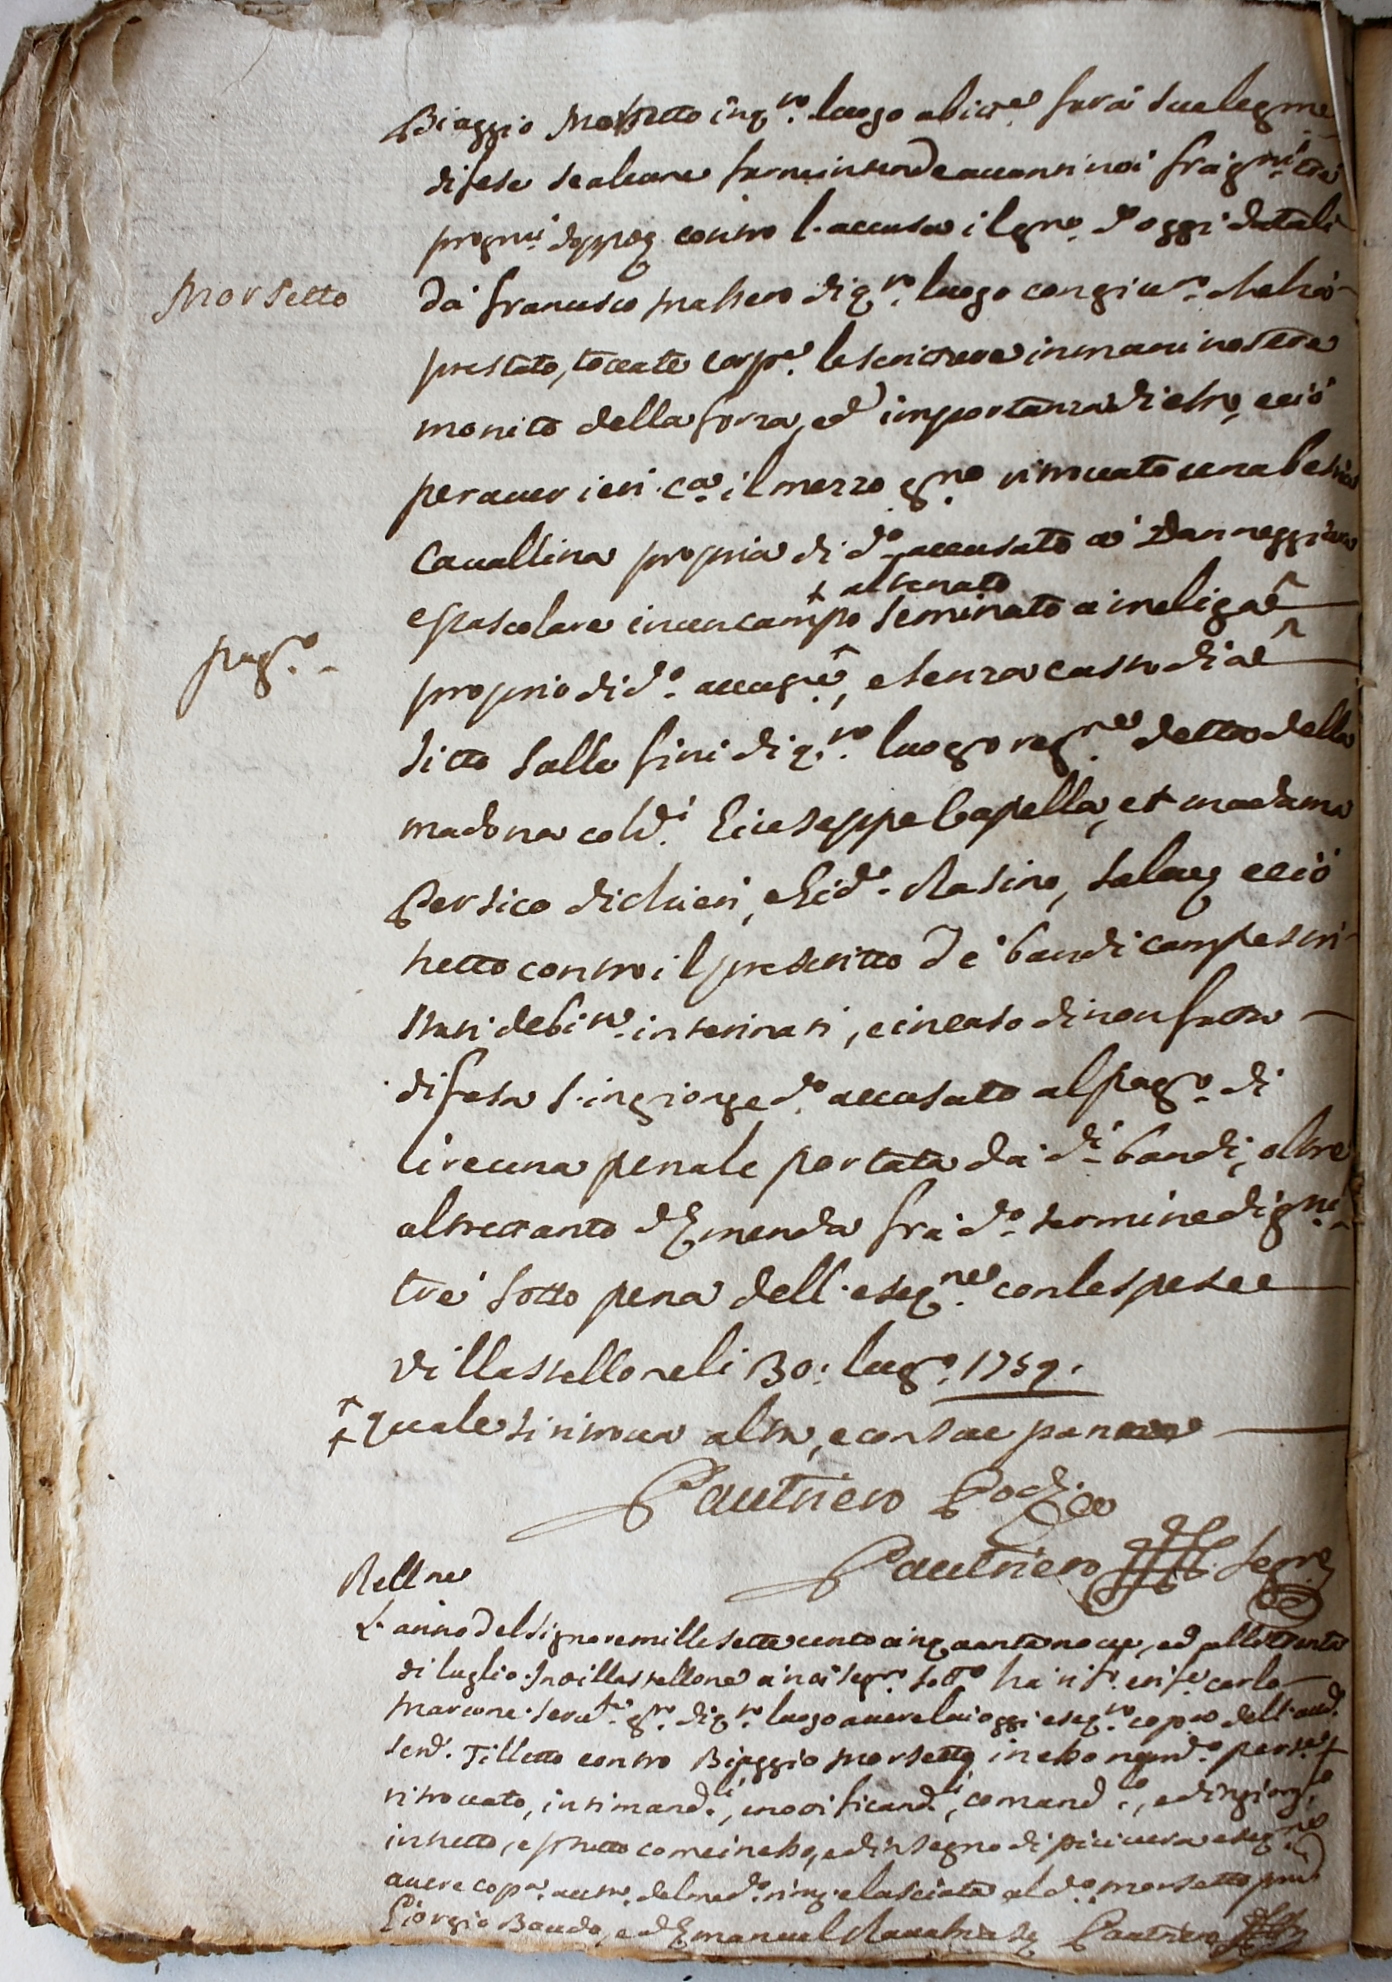 Biaggio Morsetto in q.to luogo abit.e farà sue legme
difese se alcune farne intende avanti noi frà g.ni trè
pross.mi doppo q. contro l'accusa il g.no d'oggi datali
Morsetto
da Francesco Massero di q.to luogo con giur.o che ha
prestato, toccate corp.e le scritture in mani nostre
monito della forza, ed importanza di esso, e ciò
per aver ieri c.a il mezzo g.no ritrovato una bestia
Cavallina propria di d.o accusato a danneggiare
+ altenato
e pascolare in un campo seminato a meliga
pag.to
proprio di d.o accus.e, e senza custodia
sitto sulle fini di q.to luogo reg.ne detta della
madona col.di Giuseppe Capella, et madama
Persico di Chieri, e Gio d.o Rasino, salvo q e ciò
hetto contro il prescritto de' bandi campestri
stati debit.e interinati, e in caso di non fatta
difesa s'ingionge d.o accusato al pag.to di
lire una penale portata da d.i bandi, oltre
altrettanto d'Emenda frà d.o termine di g.ni
tre sotto pena dell'eseq.ne con le spese e
Villastellone li 30: lug.o 1759.
+ quale si ritrova alta, e con sue panne
Gautriero Pod.a
Gautriero Segr.o
Rell.ne
L'anno del Signore mille settecento cinquantanove, ed alli trenta
di luglio. In Villastellone a noi segr.o sott.o ha rif.to e rif.e Carlo
Marione serv.te g.re di q.to luogo avere lui oggi eseq.to copia dell'avd.
send. Tilletto contro Biaggio Morsetto in esso nomd.o pers.te
ritrovato, intimand.li, e notificand.li, comand.o, ed ingiong.do
in tutto, e p tutto come in esso, ed in segno di più vera eseq.ne
avere copia del med.o rim. e lasciata al d.o Morsetto pnti
Giorgio Baudo, ed Emanuel Gautriero